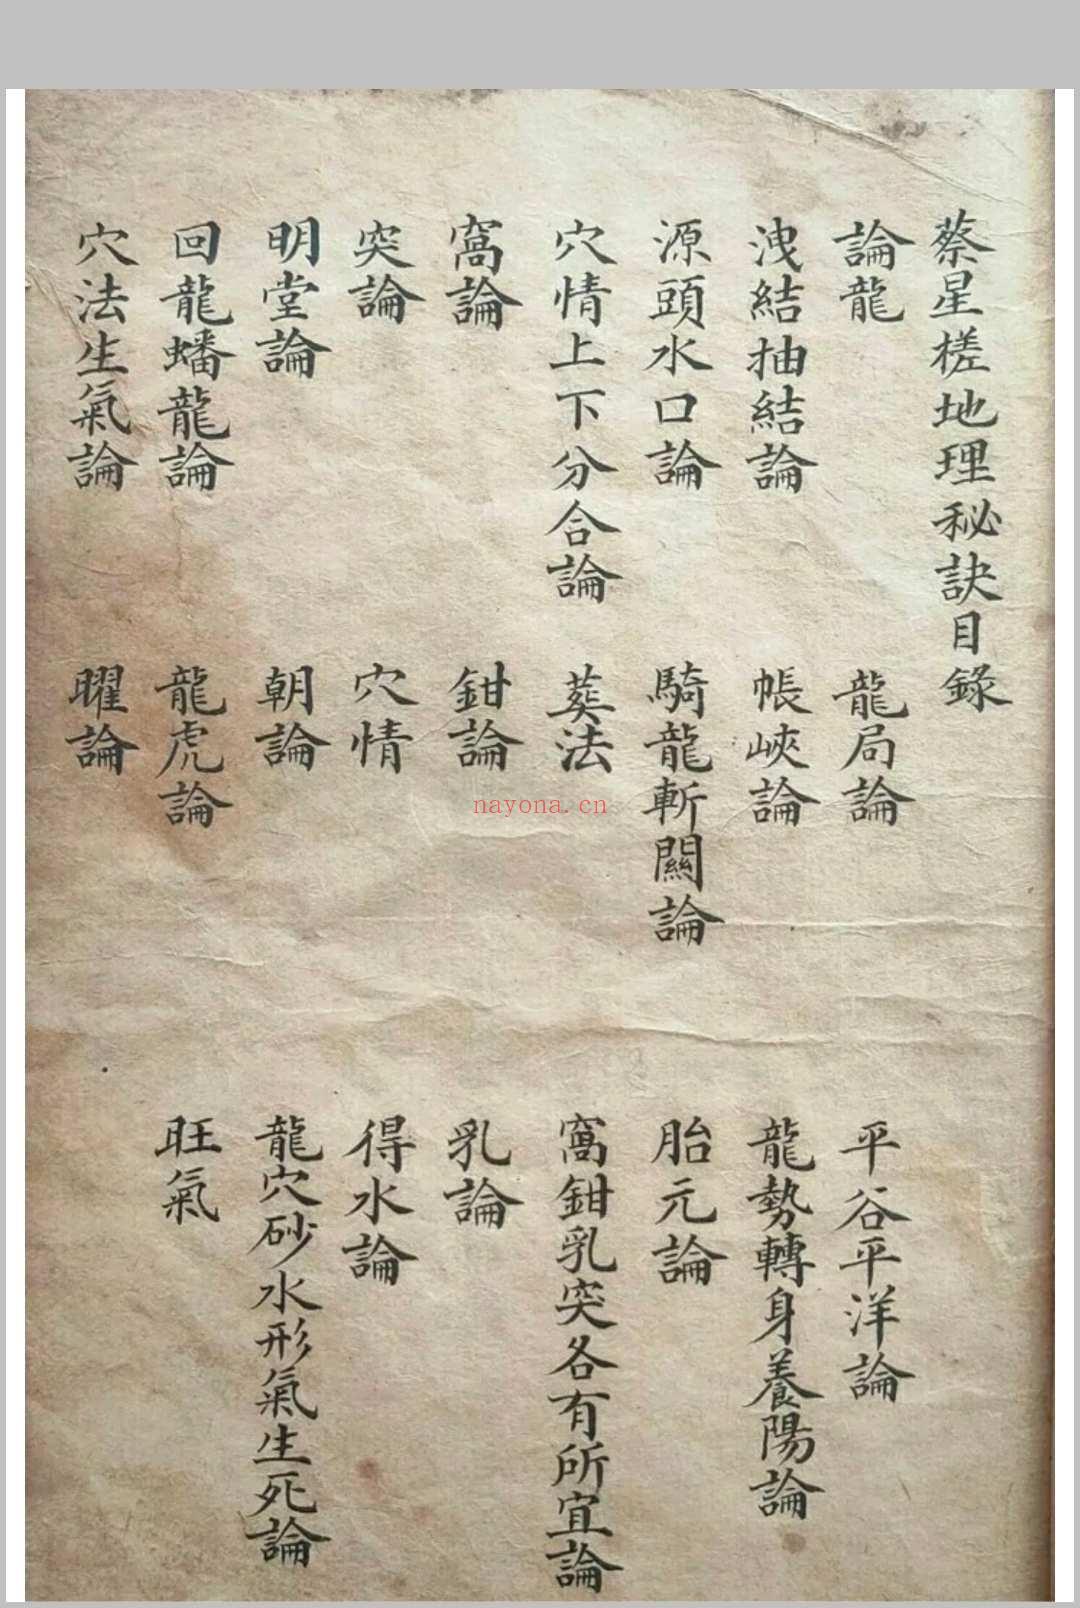 蔡星槎地理秘訣目錄
論龍　龍局論　平谷平洋論
洩結抽結論　帳峽論　龍勢轉身養陽論
源頭水口論　騎龍斬關論　胎元論
穴情上下分合論　葬法　窩鉗乳突各有所宜論
窩論　鉗論　乳論
突論　穴情　得水論
明堂論　朝論　龍穴砂水形氣生死論
回龍蟠龍論　龍虎論　旺氣
穴法生氣論　曜論
nayona.cn